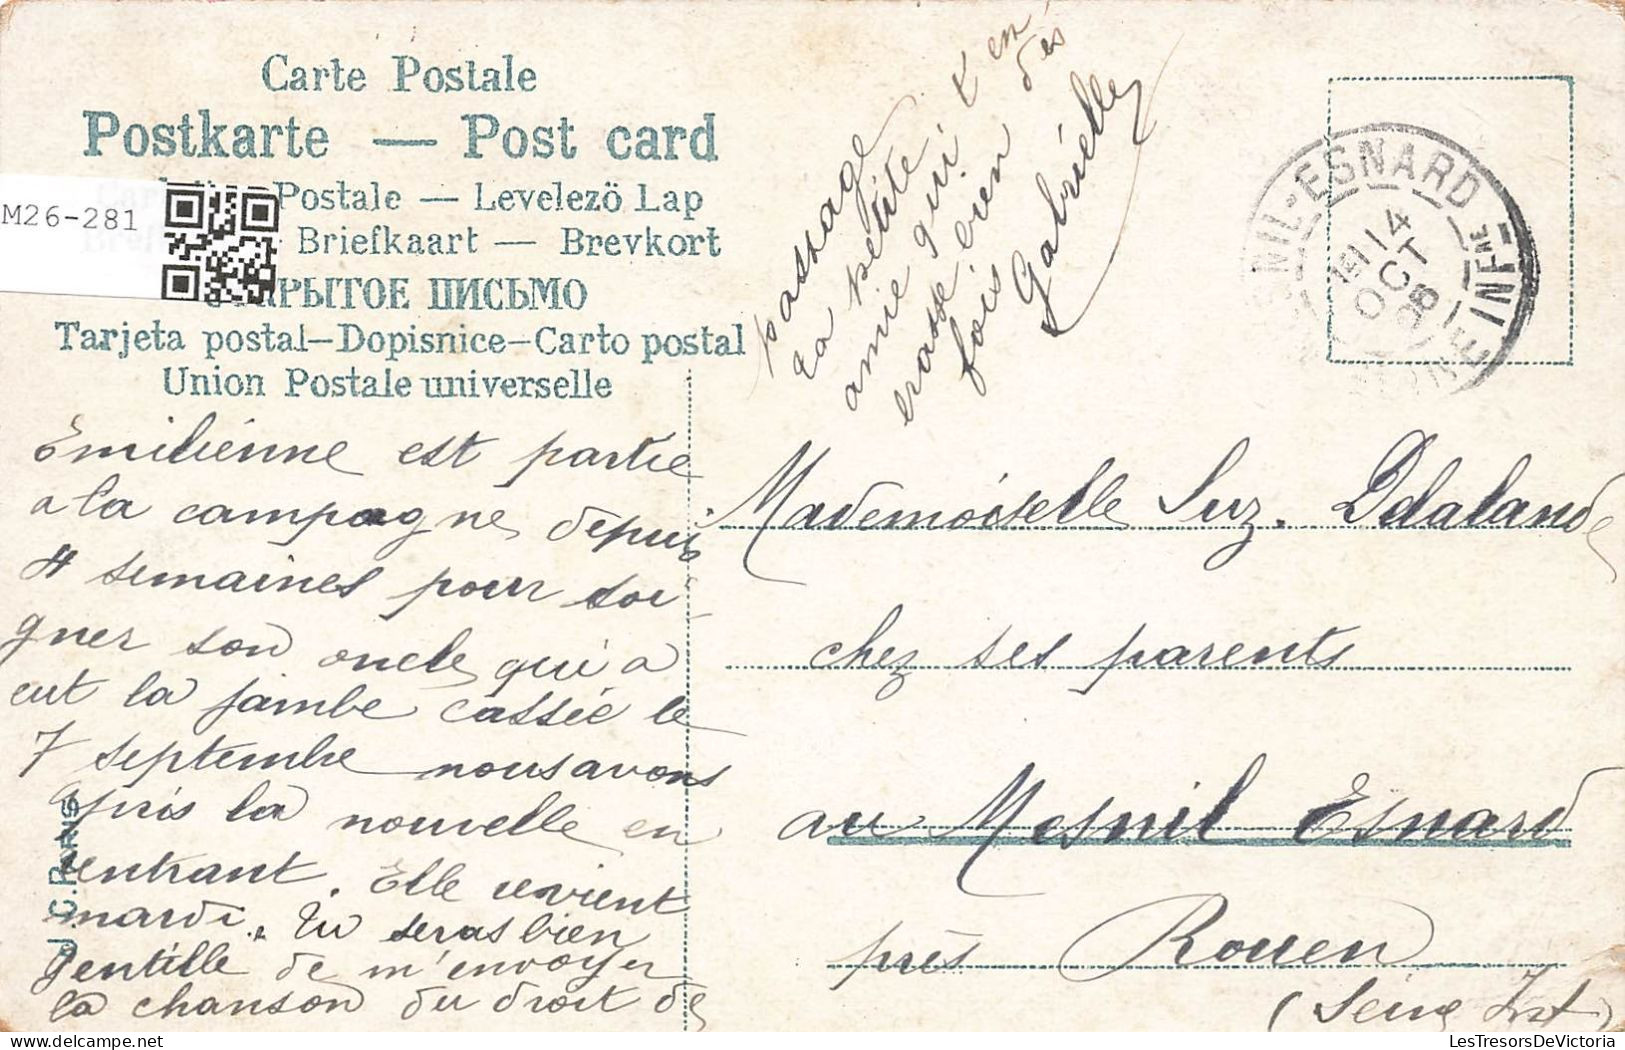 Carte Postale
Postkarte — Post card
Postale — Levelezö Lap
Briefkaart — Brevkort
ПИСЬМО
Tarjeta postal—Dopisnice—Carto postal
Union Postale universelle
M26-281
Emilienne est partie
a la campagne depuis
4 semaines pour soi
gner son oncle qui a
eut la jambe cassée le
7 septembre nous avons
apris la nouvelle en
rentrant. Elle revient
mardi. Tu seras bien
gentille de m'envoyer
la chanson du droit de
passage
La petite
amie qui t'en
brasse bien des
fois
Gabrielle
MESNIL-ESNARD
14
OCT
INFRE
Mademoiselle Suz. Delalande
chez ses parents
au Mesnil Esnard
près Rouen
(Seine Inf)
J.C. PARIS
LesTresorsDeVictoria